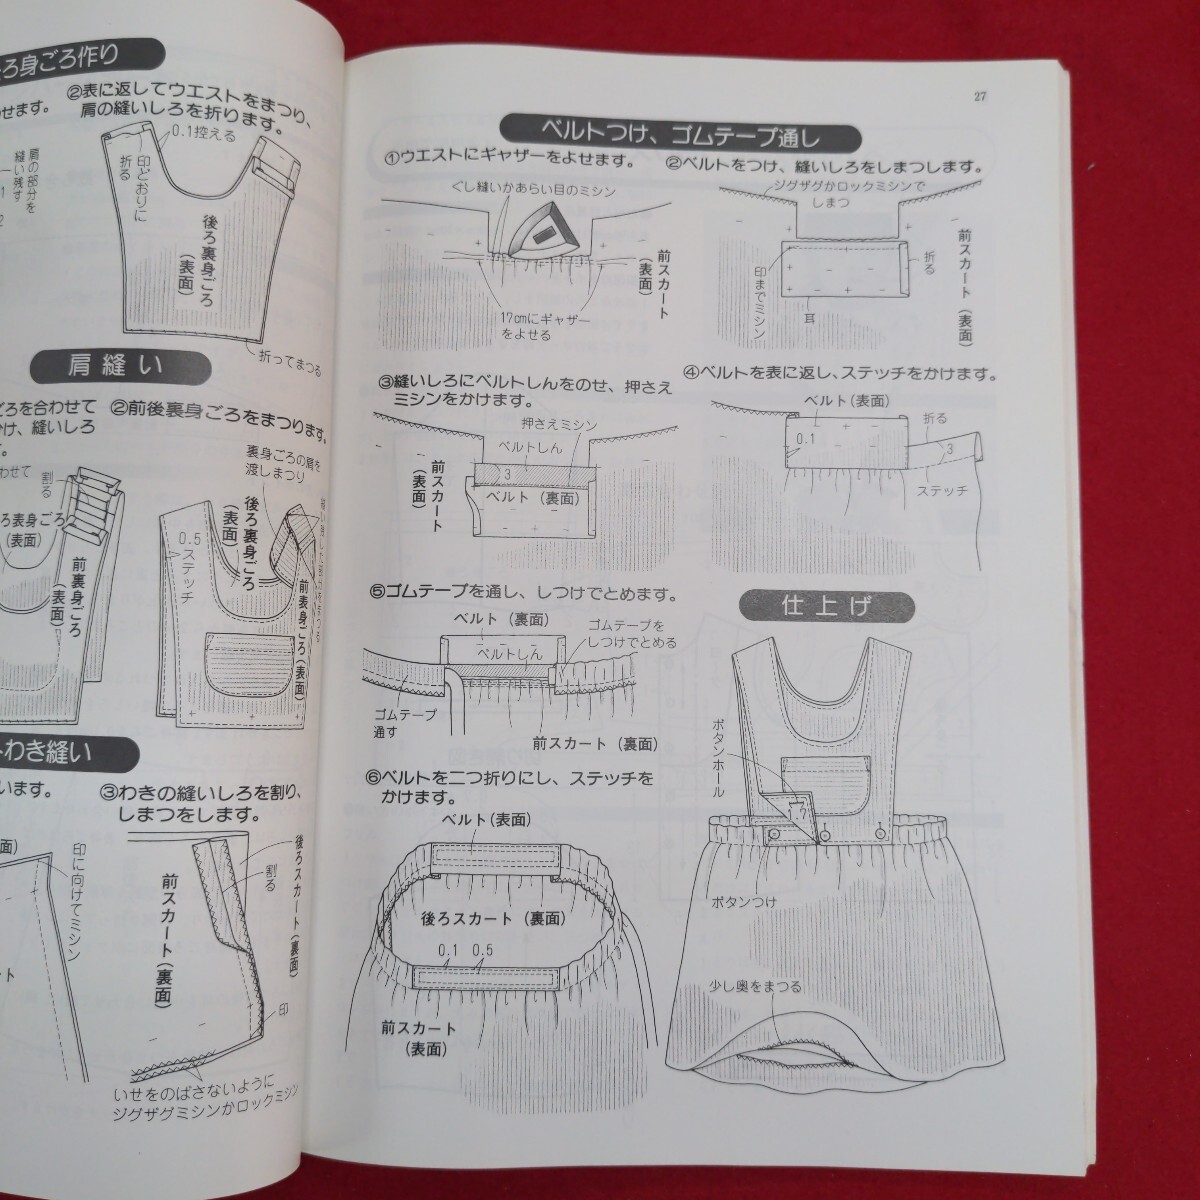 ろ身ごろ作り
わせます。
②表に返してウエストをまつり、
肩の縫いしろを折ります。
0.1控える
肩の部分を
縫い残す
印どおりに
折る
後ろ裏身ごろ
(表面)
折ってまつる
肩縫い
ごろを合わせて
け、縫いしろ
す。
②前後裏身ごろをまつります。
わせて
割る
ろ表身ごろ
(表面)
前裏身ごろ
(表面)
裏身ごろの肩を
渡しまつり
後ろ裏身ごろ
(表面)
0.5
ステッチ
前表身ごろ(表面)
わき縫い
います。
③わきの縫いしろを割り、
しまつをします。
面)
印に向けてミシン
ト
前スカート(裏面)
割る
後ろスカート(裏面)
印
いせをのばさないように
ジグザグミシンかロックミシン
27
ベルトつけ、ゴムテープ通し
①ウエストにギャザーをよせます。
ぐし縫いかあらい目のミシン
前スカート
(表面)
17cmにギャザー
をよせる
②ベルトをつけ、縫いしろをしまつします。
ジグザグかロックミシンで
しまつ
折る
前スカート(表面)
印までミシン
耳
③縫いしろにベルトしんをのせ、押さえ
ミシンをかけます。
押さえミシン
ベルトしん
3
ベルト(裏面)
前スカート
(表面)
④ベルトを表に返し、ステッチをかけます。
ベルト(表面)
0.1
折る
3
ステッチ
⑤ゴムテープを通し、しつけでとめます。
ベルト(裏面)
ゴムテープを
しつけでとめる
ベルトしん
ゴムテープ
通す
前スカート(裏面)
⑥ベルトを二つ折りにし、ステッチを
かけます。
ベルト(表面)
後ろスカート(裏面)
0.1 0.5
前スカート
(表面)
仕上げ
ボタンホール
ボタンつけ
少し奥をまつる